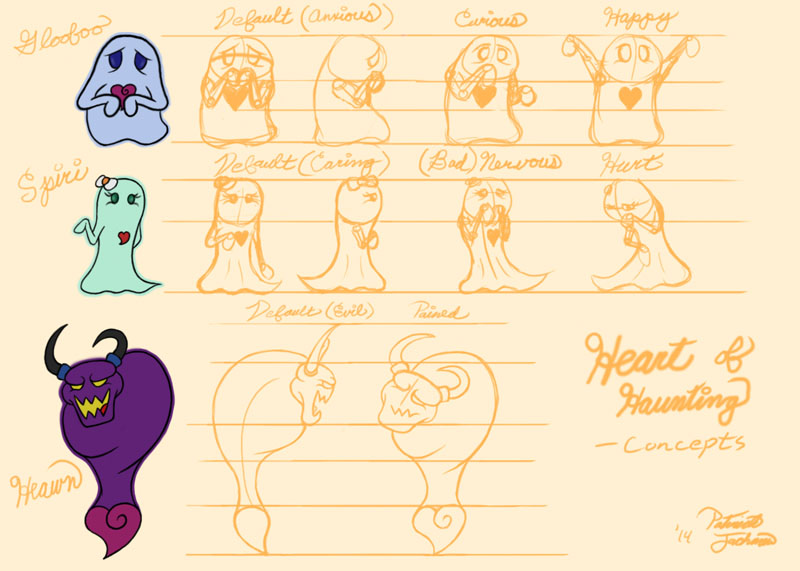 Glooboo
Default (Anxious)
Curious
Happy
Spiri
Default (Caring)
(Bad) Nervous
Hurt
Default (Evil)
Pained
Heart of
Haunting
- Concepts
Heawn
'14